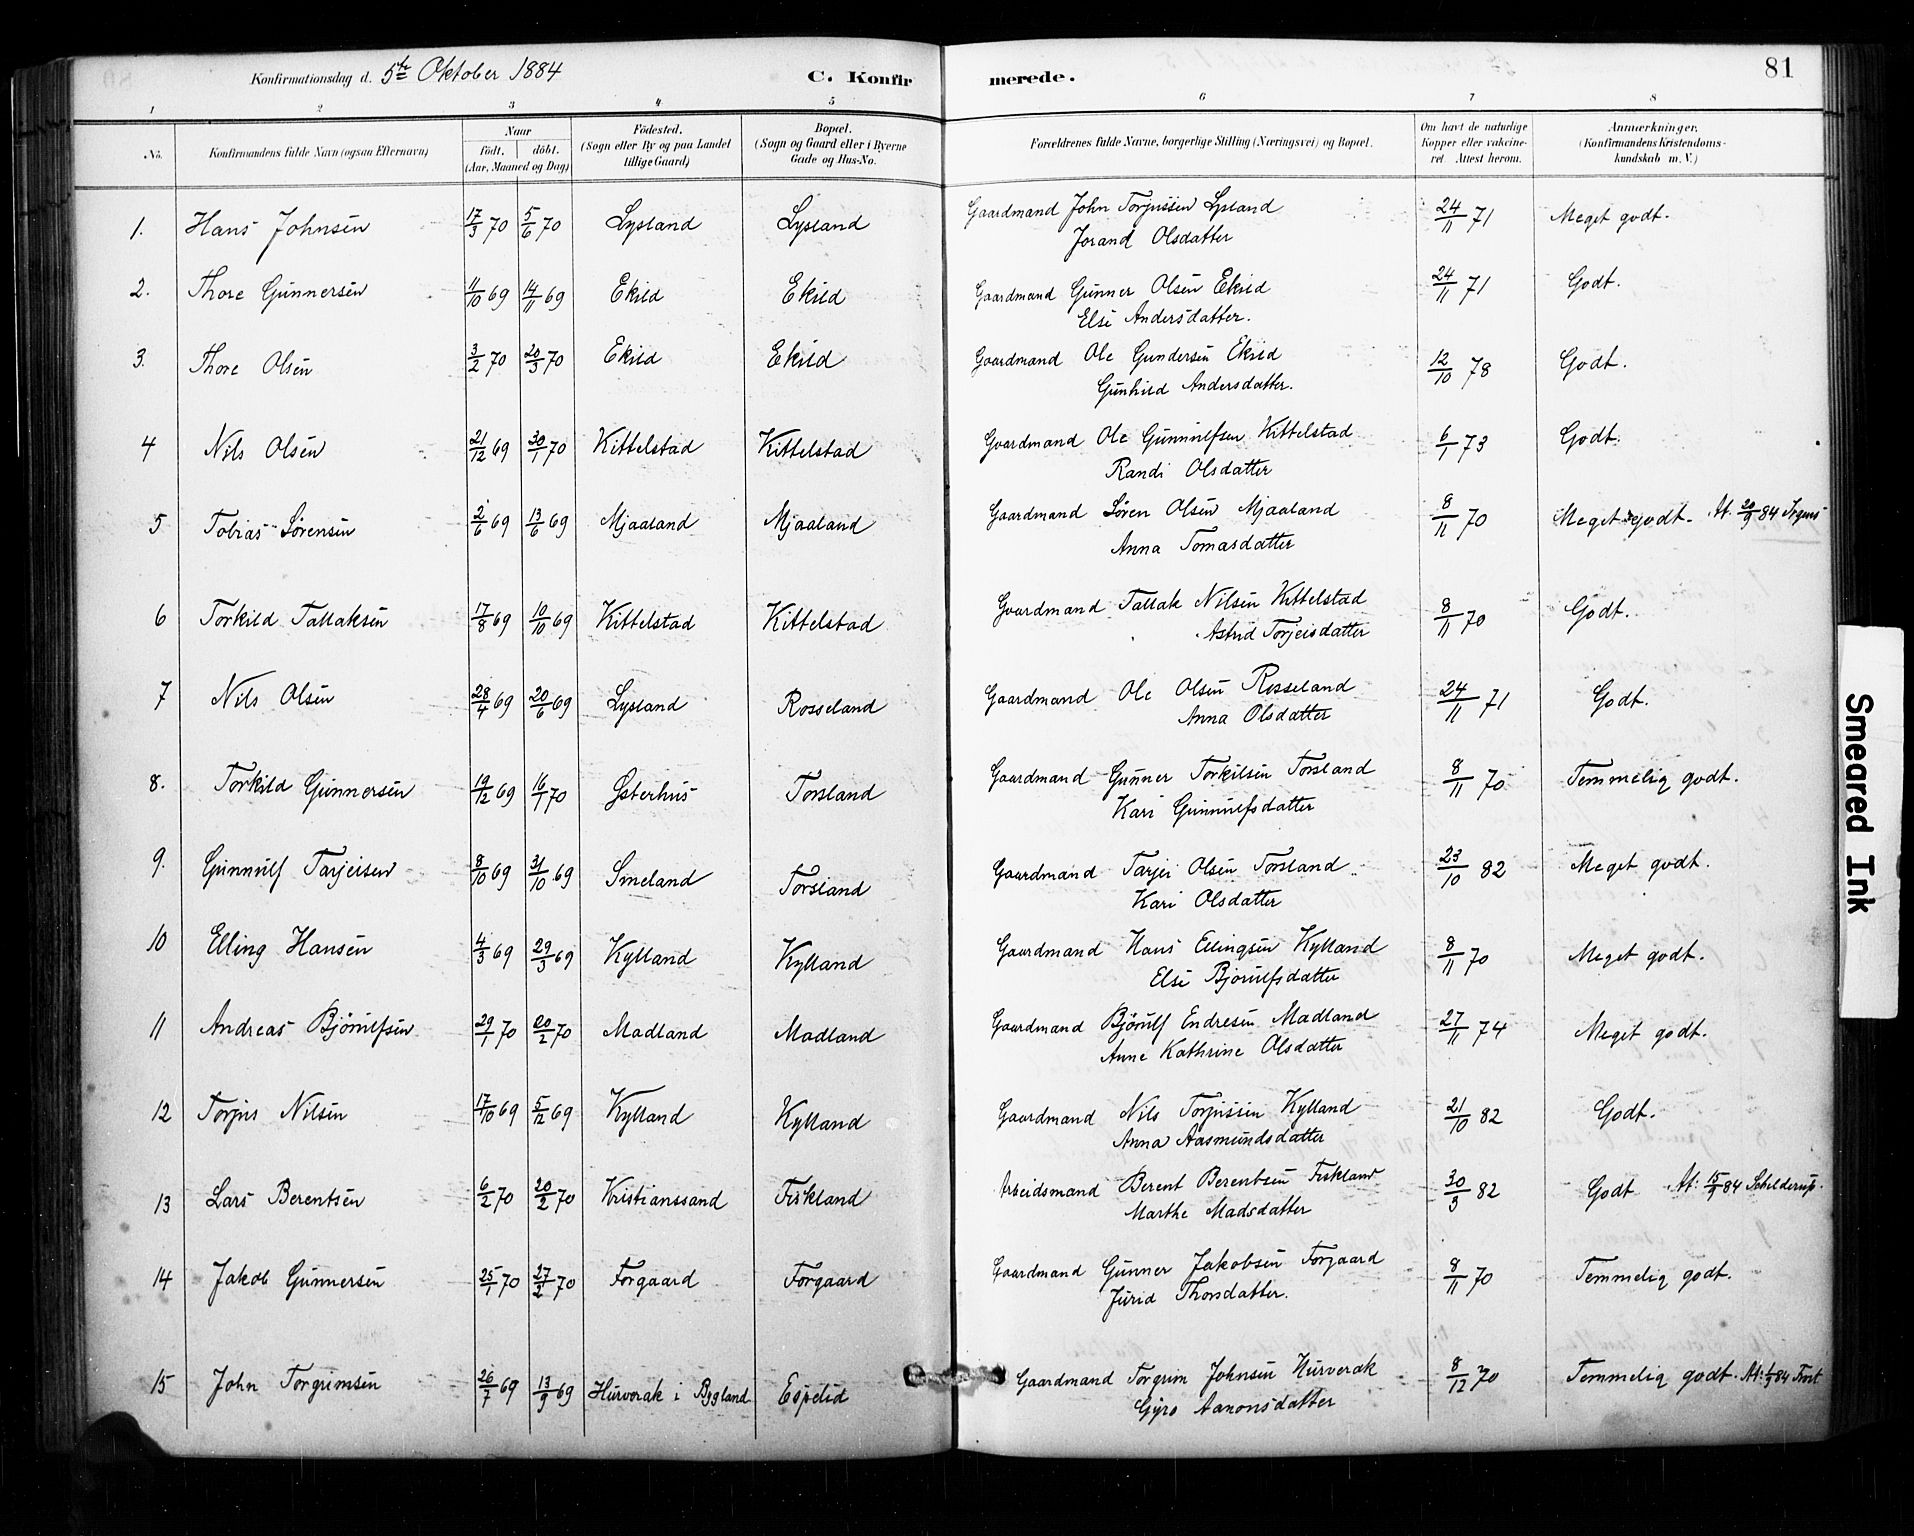 Konfirmationsdag d. 5te Oktober 1884 C. Konfirmerede. 81
1 2 3 4 5 6 7 8
No. Konfirmandens fulde Navn (ogsaa Efternavn) Naar födt. döbt. (Aar, Maaned og Dag) Födested. (Sogn eller By og paa Landet tillige Gaard) Bopæl. (Sogn og Gaard eller i Byerne Gade og Hus-No. Forældrenes fulde Navne, borgerlige Stilling (Næringsvei) og Bopæl. Om havt de naturlige Kopper eller vakcineret Attest herom. Anmærkninger. (Konfirmandens Kristendomskundskab m. V.)
1. Hans Johnsen 17/3 70 5/6 70 Lysland Lysland Gaardmand John Torjussen Lysland 24/11 71 Meget godt.
Jorand Olsdatter
2. Thore Gunnersen 11/10 69 14/11 69 Ekild Ekild Gaardmand Gunner Olsen Ekild 24/11 71 Godt.
Else Andersdatter.
3. Thore Olsen 3/2 70 20/3 70 Ekild Ekild Gaardmand Ole Gundersen Ekild 12/10 78 Godt.
Gunhild Andersdatter.
4 Nils Olsen 21/12 69 30/1 70 Kittelstad Kittelstad Gaardmand Ole Gunnulfsen Kittelstad 6/1 73 Godt.
Randi Olsdatter
5 Tobias Sørensen 2/6 69 13/6 69 Mjaaland Mjaaland Gaardmand Søren Olsen Mjaaland 8/11 70 Meget godt. At. 20/9 84 Irgens
Anna Tomasdatter
6 Torkild Tallaksen 17/8 69 10/10 69 Kittelstad Kittelstad Gaardmand Tallak Nilsen Kittelstad 8/11 70 Godt.
Astrid Torjeisdatter
7 Nils Olsen 28/4 69 20/6 69 Lysland Rosseland Gaardmand Ole Olsen Rosseland 24/11 71 Godt.
Anna Olsdatter
8. Torkild Gunnersen 19/12 69 16/1 70 Østerhus Torsland Gaardmand Gunner Torkilsen Torsland 8/11 70 Temmelig godt.
Kari Gunnulfsdatter
9. Gunnulf Tarjeisen 8/10 69 31/10 69 Smeland Torsland Gaardmand Tarjei Olsen Torsland 23/10 82 Meget godt.
Kari Olsdatter
10 Elling Hansen 4/3 69 29/3 69 Kylland Kylland Gaardmand Hans Ellingsen Kylland 8/11 70 Meget godt.
Else Bjorulfsdatter
11 Andreas Bjørulfsen 29/1 70 20/2 70 Madland Madland Gaardmand Bjørulf Endresen Madland 27/11 74 Meget godt.
Anne Kathrine Olsdatter
12 Torjus Nilsen 17/10 69 5/12 69 Kylland Kylland Gaardmand Nils Torjussen Kylland 21/10 82 Godt.
Anna Aasmundsdatter
13 Lars Berentsen 6/2 70 20/2 70 Kristianssand Fiskland Arbeidsmand Berent Berentsen Fiskland 30/3 82 Godt At: 15/9 84 Schelderup.
Marthe Madsdatter
14 Jakob Gunnersen 25/1 70 27/2 70 Forgaard Forgaard Gaardmand Gunner Jakobsen Forgaard 8/11 70 Temmelig godt.
Jurid Thorsdatter.
15 John Torgrimsen 26/7 69 13/9 69 Hurverak i Bygland Espelid Gaardmand Torgrim Johnsen Hurverak 8/12 70 Temmelig godt. At: 1/9 84
Gyro Aanonsdatter
Smeared Ink